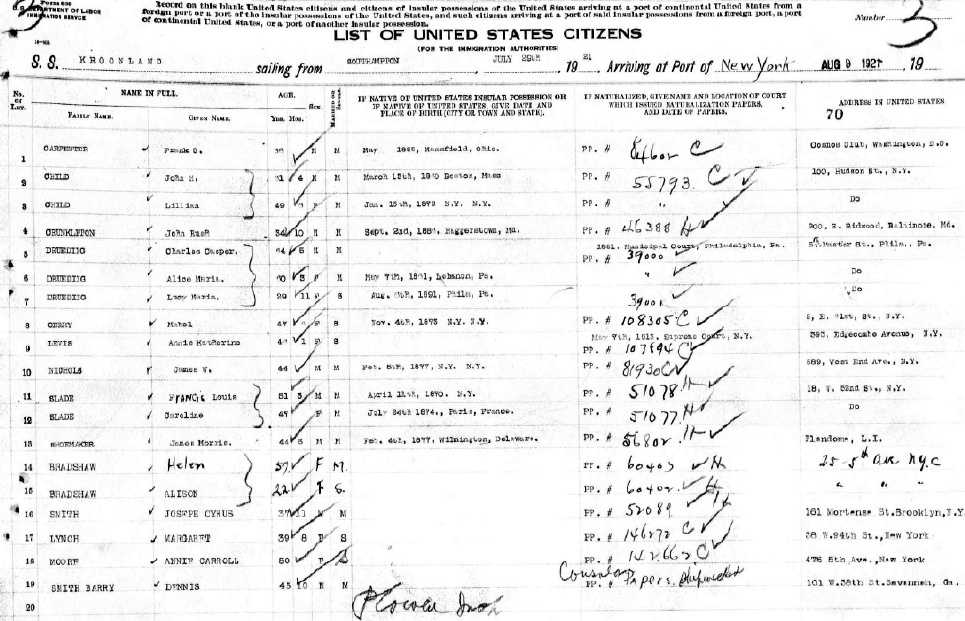 Form 630
U.S. DEPARTMENT OF LABOR
IMMIGRATION SERVICE
Record on this blank United States citizens and citizens of insular possessions of the United States arriving at a port of continental United States from a
foreign port or a port of the insular possessions of the United States, and such citizens arriving at a port of said insular possessions from a foreign port, a port
of continental United States, or a port of another insular possession.
Number 3
LIST OF UNITED STATES CITIZENS
(FOR THE IMMIGRATION AUTHORITIES)
S. S. KROONLAND sailing from SOUTHAMPTON JULY 29th 19 21 Arriving at Port of New York AUG 9 1921 19
No. on List. NAME IN FULL. AGE. Sex Married or Single IF NATIVE OF UNITED STATES INSULAR POSSESSION OR IF NATIVE OF UNITED STATES, GIVE DATE AND PLACE OF BIRTH (CITY OR TOWN AND STATE). IF NATURALIZED, GIVE NAME AND LOCATION OF COURT WHICH ISSUED NATURALIZATION PAPERS, AND DATE OF PAPERS. ADDRESS IN UNITED STATES
Family Name. Given Name. Yrs. Mos. 70
1 CARPENTER Frank G. M May 1855, Mansfield, Ohio. PP. # C Cosmos Club, Washington, D.C.
2 CHILD John M. 4 M M March 15th, Boston, Mass PP. # 55793 C 100, Hudson St., N.Y.
3 CHILD Lillian 49 F M Jan. 15th, 1872 N.Y. N.Y. PP. # " Do
4 CRUNKLETON John Rush 34 10 M M Sept. 2nd, 1886, Haggerstown, Md. PP. # 46388 H 200, E. Redwood, Baltimore, Md.
5 DRUEDING Charles Casper. 5 M M 1881, Municipal Court, Philadelphia, Pa. PP. # 39000 Master St., Phila., Pa.
6 DRUEDING Alice Maria. F M May 7th, Lebanon, Pa. " Do
7 DRUEDING Lucy Maria. 29 11 F S Aug. 1891, Phila, Pa. Do
8 GERRY Mabel 47 F S Nov. 4th, 1873 N.Y. N.Y. PP. # 108305 C 2, E. 61st, St., N.Y.
9 LEVIS Annie Katherine F S May 7th, 1913. Supreme Court, N.Y. PP. # 107894 C 393, Edgecombe Avenue, N.Y.
10 NICHOLS James W. 44 M M Feb. 8th, 1877, N.Y. N.Y. PP. # 81930 C 689, West End Ave., N.Y.
11 SLADE FRANCIS Louis 51 3 M M April 12th, 1870. N.Y. PP. # 51078 H 18, W. 52nd St., N.Y.
12 SLADE Caroline 47 F M July 24th 1874., Paris, France. PP. # 51077 H Do
13 SHOEMAKER James Morris. 44 5 M M Feb. 4th, 1877, Wilmington, Delaware. PP. # 56802 H Plandome, L.I.
14 BRADSHAW Helen 57 F M. PP. # 60403 H 25 - 5th Ave N.Y.C
15 BRADSHAW ALISON 22 F S. PP. # 60402 H " " "
16 SMITH JOSEPH CYRUS 37 11 M M PP. # 52089 H 161 Mortense St.Brooklyn,N.Y
17 LYNCH MARGARET 39 8 F S PP. # 146272 C 38 W.94th St.,New York
18 MOORE ANNIE CARROLL 50 F S PP. # 142662 C 476 5th Ave.,New York
19 SMITH BARRY DENNIS 45 10 M M Consular PP. # Papers 101 W.38th St.Savannah, Ga.
20